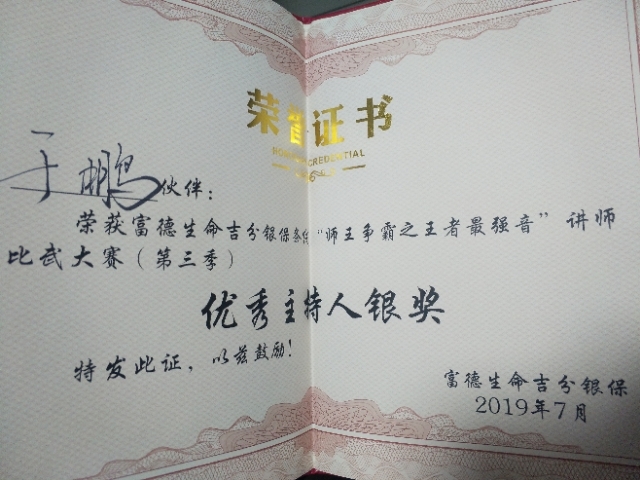 荣誉证书
HONOR CREDENTIAL
于鹏伙伴：
荣获富德生命吉分银保系统“师王争霸之王者最强音”讲师
比武大赛（第三季）
优秀主持人银奖
特发此证，以兹鼓励！
富德生命吉分银保
2019年7月